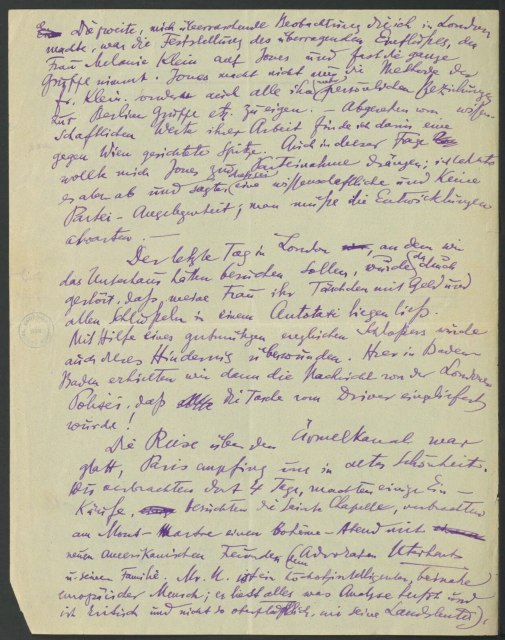 Die zweite, mich überraschende Beobachtung die ich in London
machte, war die Feststellung des überragenden Einflußes, den
Frau Melanie Klein auf Jones und fast die ganze
Gruppe nimmt. Jones macht nicht nur die Methode der
Fr. Klein sondern auch alle ihre persönlichen Beziehungen
zur Berliner Gruppe etc. zu eigen. – Abgesehen vom wissen-
schaftlichen Werte ihrer Arbeit finde ich darin eine
gegen Wien gerichtete Spitze. Auch in dieser Frage
wollte mich Jones zur Parteinahme drängen; ich lehnte
es aber ab und sagte, dies sei eine wissenschaftliche und keine
Partei-Angelegenheit; man müße die Entwicklungen
abwarten. –
Der letzte Tag in London, an dem wir
das Unterhaus hätten besuchen sollen, wurde dadurch
gestört, daß meine Frau ihr Täschchen mit Geld und
allen Schlüßeln in einem Autotaxi liegen ließ.
Mit Hilfe eines gutmütigen englischen Schloßers wurde
auch dieses Hindernis überwunden. Hier in Baden-
Baden erhielten wir dann die Nachricht von der Londoner
Polizei, daß die Tasche vom Driver eingeliefert
wurde!
Die Reise über den Ärmelkanal war
glatt, Paris empfing uns in alter Schönheit.
Wir verbrachten dort 4 Tage, machten einige Ein-
käufe, besuchten die Sainte Chapelle, verbrachten
am Mont-Martre einen Bohème-Abend mit
neuen amerikanischen Freunden (dem Advokaten
u. seiner Familie. Mr. U. ist ein hochintelligenter, beinahe
europäischer Mensch; er liest alles was Analyse betrifft und
ist kritisch und nicht so oberflächlich, wie seine Landsleute).